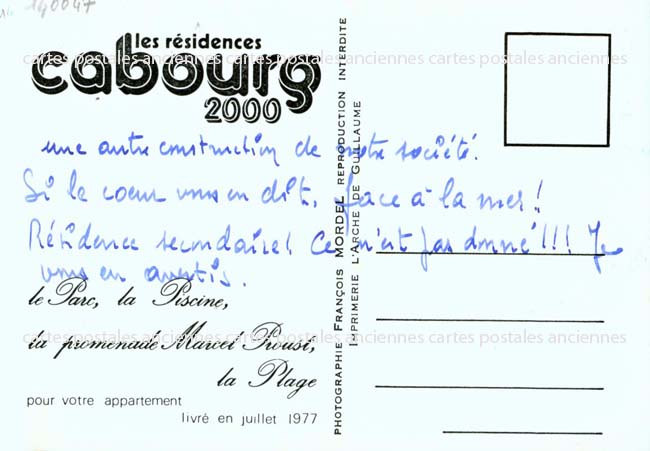 140047
les résidences
cabourg
2000
une autre construction de notre société.
Si le coeur vous en dit, face à la mer !
Résidence secondaire ! Ce n'est pas donné !!! Je
vous en avertis.
le Parc, la Piscine,
la promenade Marcel Proust,
la Plage
pour votre appartement
livré en juillet 1977
PHOTOGRAPHIE FRANÇOIS MORDEL REPRODUCTION INTERDITE
IMPRIMERIE L'ARCHE DE GUILLAUME
cartes postales anciennes cartes postales anciennes cartes postales anciennes cartes postales anciennes
cartes postales anciennes cartes postales anciennes cartes postales anciennes cartes postales anciennes